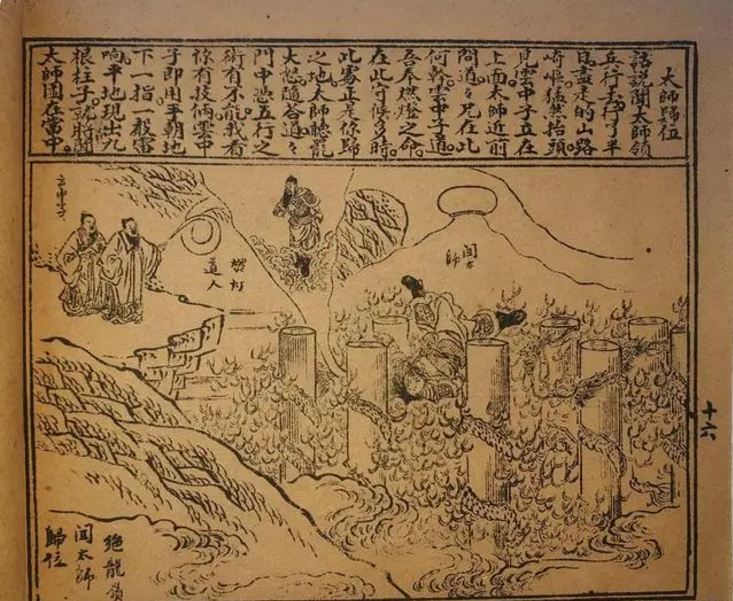 太師歸位
話說聞太師領
兵行走行了半
良盡走的山路
崎嶇猛然抬頭
見雲中子立在
上面太師近前
問道道兄在此
何幹雲中子道
吾奉燃燈之命
在此守候多時
此處正是你歸
之地太師聽罷
大怒隨答道道
門中憑五行之
術有不能我看
你有技倆雲中
子即用手朝地
下一指一般雷
响平地現出九
根柱子就將聞
太師困在當中
雲中子
燃灯
道人
聞太
師
十六
絶龍嶺
聞太師
歸位